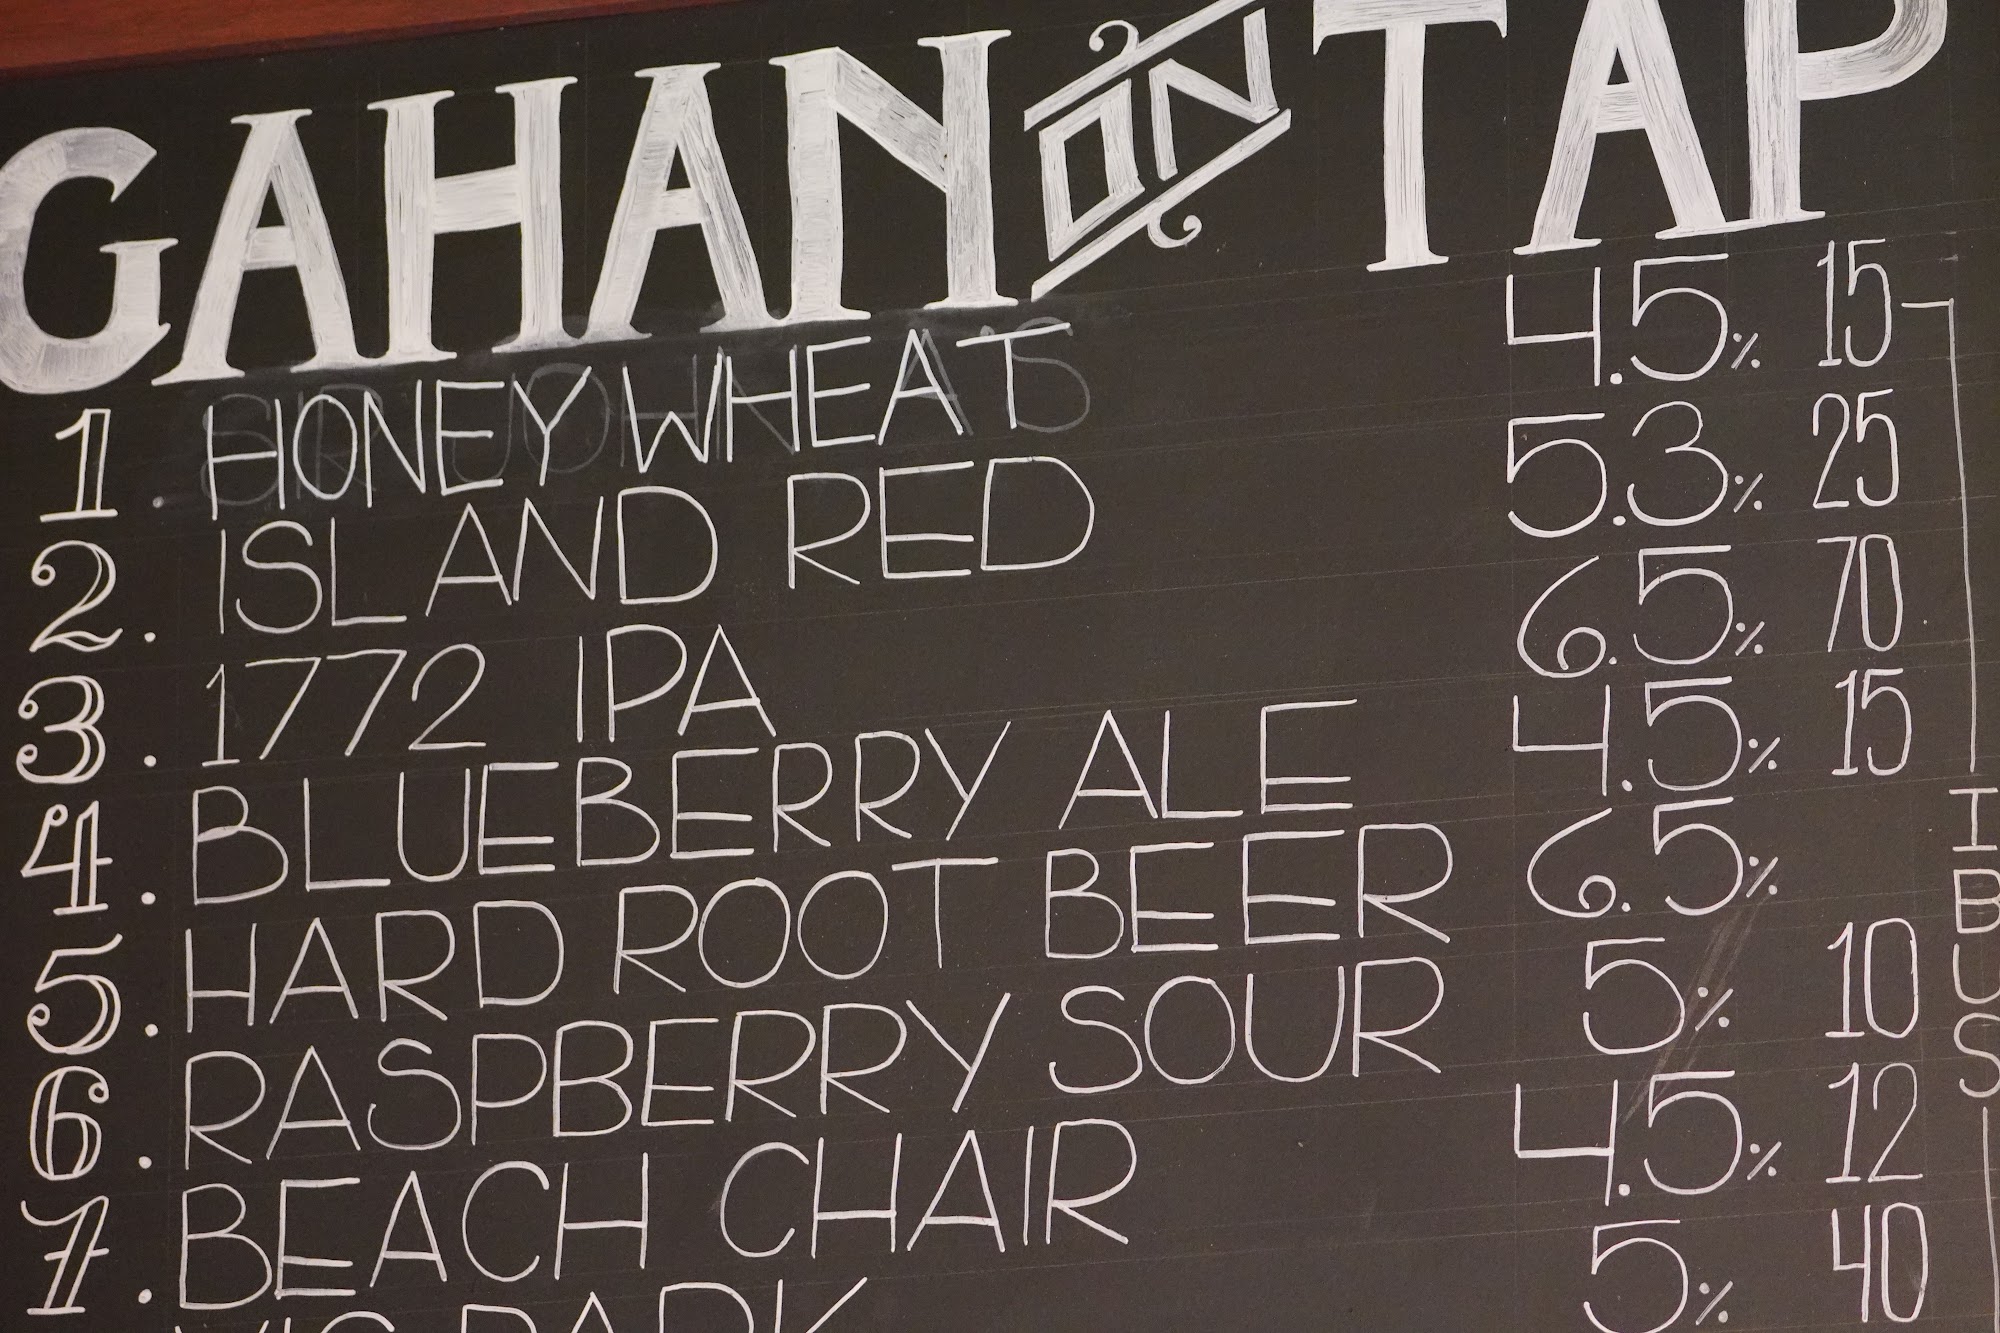 GAHAN ON TAP
1. HONEY WHEAT 4.5% 15
2. ISLAND RED 5.3% 25
3. 1772 IPA 6.5% 70
4. BLUEBERRY ALE 4.5% 15
5. HARD ROOT BEER 6.5%
6. RASPBERRY SOUR 5% 10
7. BEACH CHAIR 4.5% 12
VIC PARK 5% 40
IBUS